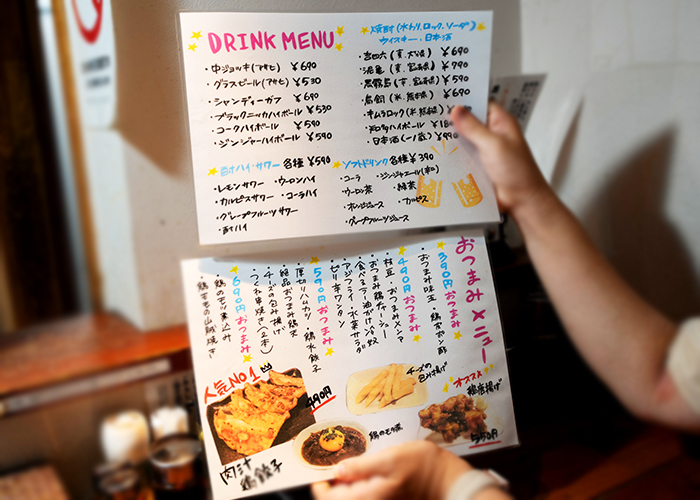 DRINK MENU
・中ジョッキ(アサヒ) ¥690
・グラスビール(アサヒ) ¥530
・シャンディーガフ ¥690
・ブラックニッカハイボール ¥530
・コークハイボール ¥590
・ジンジャーハイボール ¥590
酎ハイ・サワー 各種 ¥590
・レモンサワー ・ウーロンハイ
・カルピスサワー ・コーラハイ
・グレープフルーツサワー
焼酎(水わり、ロック、ソーダ)
ウイスキー・日本酒
・吉四六(麦、大分) ¥690
¥790
・黒霧島 ¥590
・鳥飼(米、熊本県) ¥690
・キムラロック(米、熊本県)
・日本酒(一ノ蔵) ¥990
ソフトドリンク 各種 ¥390
・コーラ ・ジンジャエール(辛口)
・ウーロン茶 ・緑茶
・オレンジジュース ・カルピス
・グレープフルーツジュース
おつまみメニュー
390円おつまみ
・おつまみ味玉 ・鶏皮ポン酢
490円おつまみ
・枝豆 ・おつまみメンマ
・おつまみ鶏チャーシュー
・食べるラー油がけ冷奴
・アジフライ ・水菜サラダ
・ピリ辛ワンタン
590円おつまみ
・厚切りハムカツ ・鶏水餃子
・絶品おつまみ鶏天
・チーズの包み揚げ
・つくね串焼き(2本)
690円おつまみ
・鶏のモツ煮込み
・鶏ももの山賊焼き
人気NO1
490円
肉汁
鶏餃子
チーズの
包み揚げ
鶏のもつ煮
オススメ
鶏唐揚げ
550円